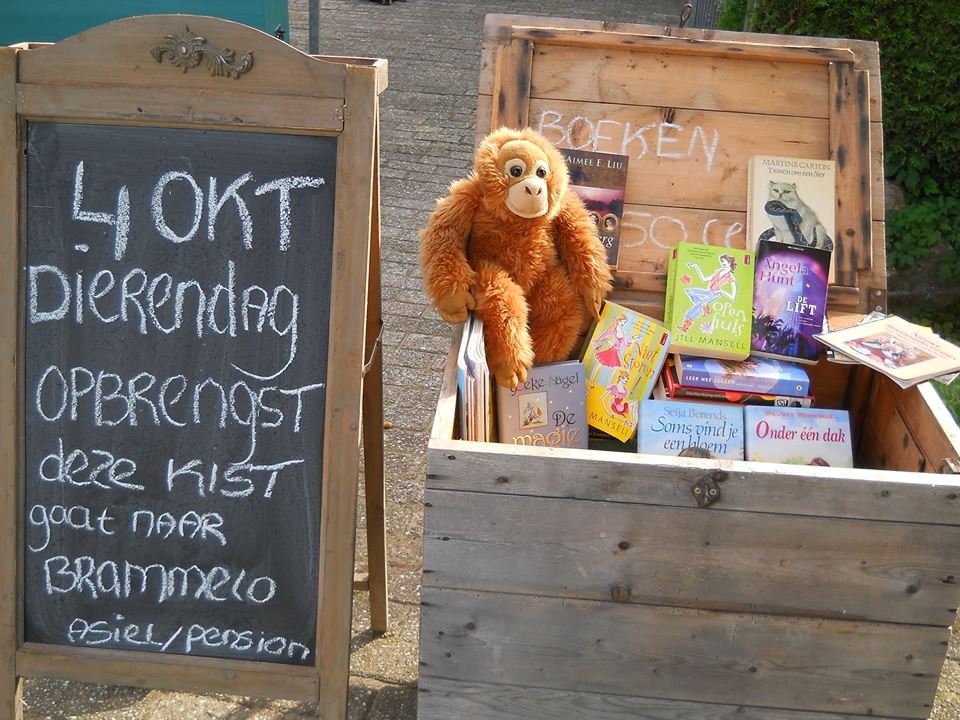 4 OKT
DIERENDAG
OPBRENGST
deze KIST
gaat NAAR
BRAMMELO
ASIEL/pension
BOEKEN
50 ce
AIMEE E. LIU
MARTINE CARTON
Tranen om een dier
JILL MANSELL
Angela
Hunt
DE
LIFT
Niet
MANSELL
Nagel
De
magie
LEER NEE ZEGGEN
Seija Berends
Soms vind je
een bloem
Onder één dak